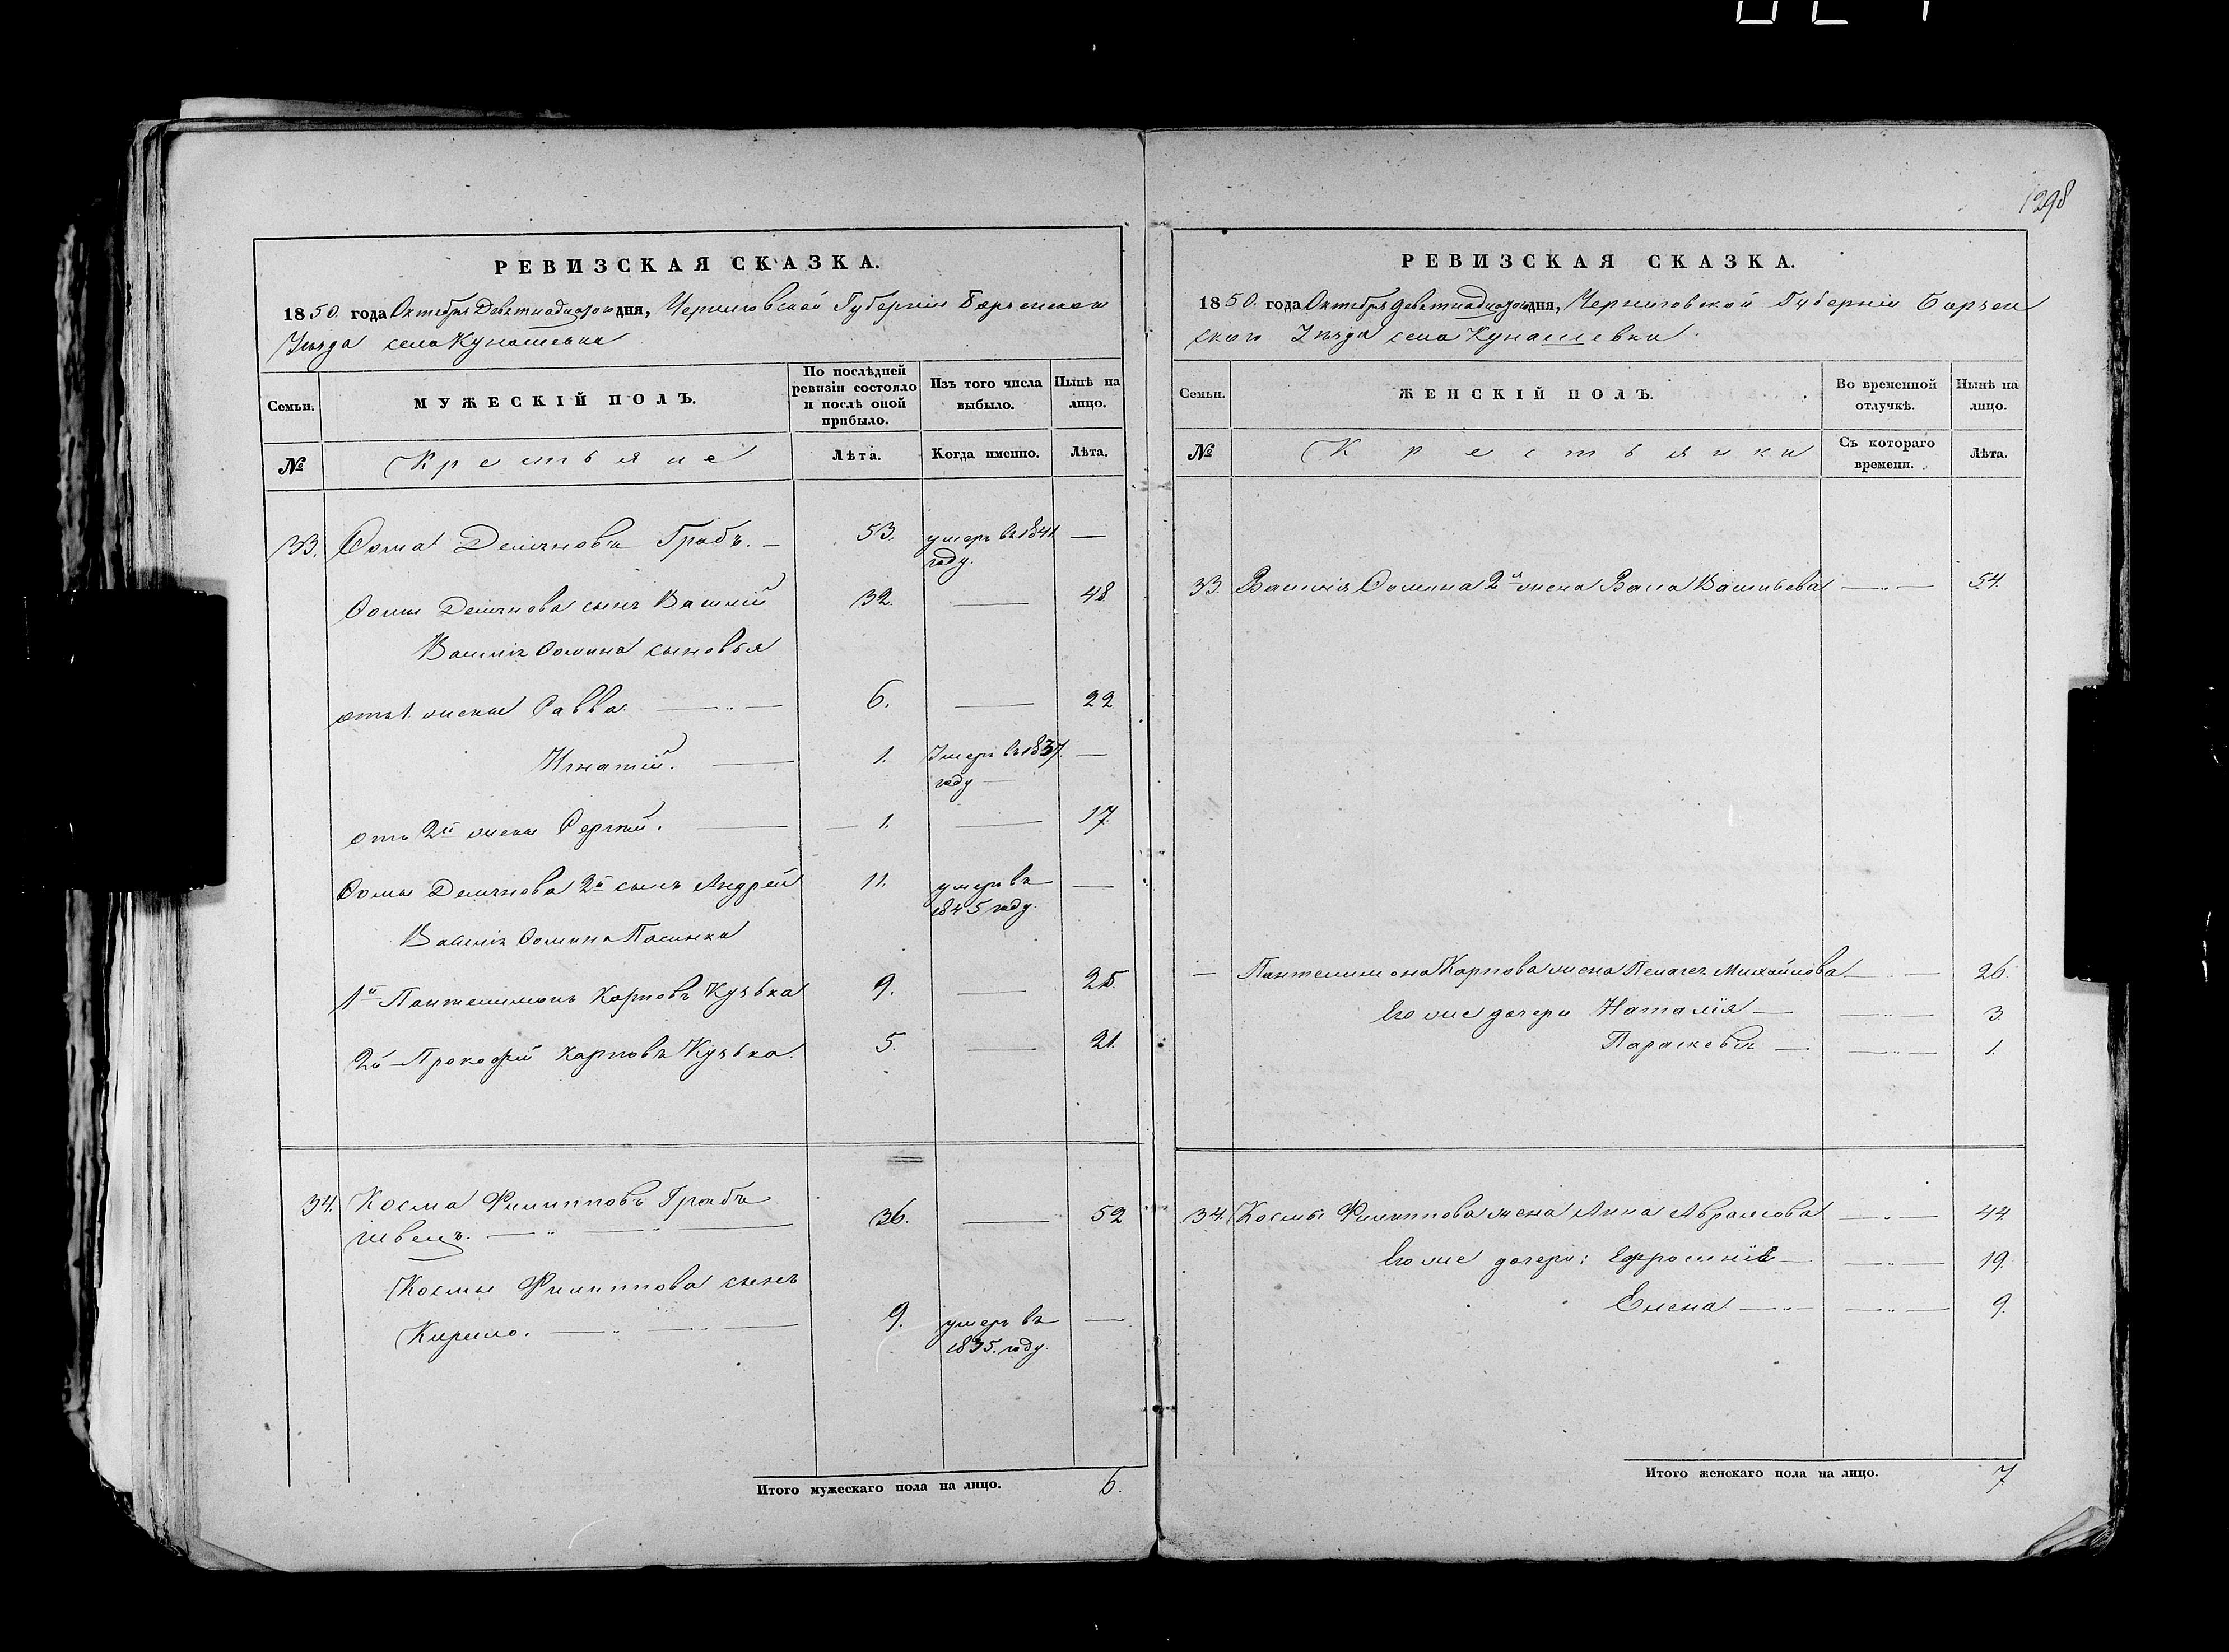 1298
РЕВИЗСКАЯ СКАЗКА.
1850. года Октября Девятнадцатого дня, Черниговской Губернiи Борзенского
Уѣзда села Кунашевки
Семьи.
МУЖЕСКIЙ ПОЛЪ.
По послѣдней ревизiи состояло и послѣ оной прибыло.
Изъ того числа выбыло.
Нынѣ на лицо.
№
Крестьяне
Лѣта.
Когда именно.
Лѣта.
33. Ѳома Демяновъ Грабъ. — 53. умеръ въ 1841 году. —
Ѳомы Демянова сынъ Василiй 32. — 48.
Василiя Ѳомина сыновья
отъ 1. жены Савва. — 6. — 22
Игнатiй. — 1. Умеръ въ 1837. году — —
отъ 2й жены Сергiй. — 1. — 17
Ѳомы Демянова 2й сынъ Андрей 11. умеръ въ 1845 году. —
Василiя Ѳомина Пасынки
1й Пантелимонъ Карповъ 9. — 25.
2й Прокофiй Карповъ 5. — 21.
34. Косма Филипповъ Грабъ
Швецъ. — 36. — 52
Космы Филиппова сынъ
Кирило. — 9. умеръ въ 1835. году. —
Итого мужескаго пола на лицо. 6.
РЕВИЗСКАЯ СКАЗКА.
1850. года Октября девятнадцатого дня, Черниговской Губернiи Борзен
ского Уѣзда села Кунашевки.
Семьи.
ЖЕНСКIЙ ПОЛЪ.
Во временной отлучкѣ.
Нынѣ на лицо.
№
Крестьянки
Съ котораго времени.
Лѣта.
33. Василiя Ѳомина 2я жена Васа Васильева — 54.
— Пантелимона Карпова жена Пелагея Михайлова — 26.
Его же дочери Наталiя — 3.
Параскевiя — 1.
34. Космы Филиппова жена Анна Абрамова — 44
Его же дочери: Ефросинiя — 19.
Елена — 9.
Итого женскаго пола на лицо. 7